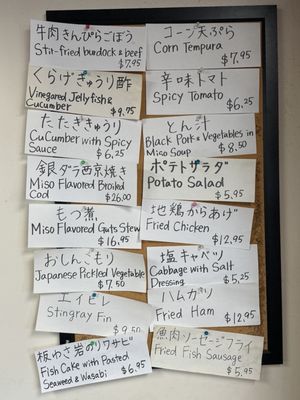 牛肉きんぴらごぼう
Stir-fried burdock & beef
$7.95
くらげきゅうり酢
Vinegared Jellyfish &
Cucumber
$9.75
たたききゅうり
CuCumber with Spicy
Sauce
$6.25
銀ダラ西京焼き
Miso Flavored Broiled
Cod
$26.00
もつ煮
Miso Flavored Guts Stew
$16.95
おしんこもり
Japanese Pickled Vegetable
$7.50
エイヒレ
Stingray Fin
$9.50
板わさ岩のりワサビ
Fish Cake with Pasted
Seaweed & Wasabi
$6.95
コーン天ぷら
Corn Tempura
$7.95
辛味トマト
Spicy Tomato
$6.25
とん汁
Black Pork & Vegetables in
Miso Soup
$8.50
ポテトサラダ
Potato Salad
$5.95
地鶏からあげ
Fried Chicken
$12.95
塩キャベツ
Cabbage with Salt
Dressing
$5.25
ハムカツ
Fried Ham
$12.95
魚肉ソーセージフライ
Fried Fish Sausage
$5.95